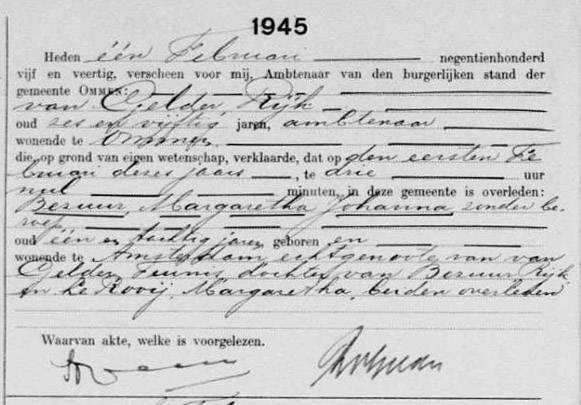 1945
Heden één Februari negentienhonderd
vijf en veertig, verscheen voor mij, Ambtenaar van den burgerlijken stand der
gemeente OMMEN:
van Gelder Rijk
oud zes en vijftig jaren, ambtenaar
wonende te Ommen
die, op grond van eigen wetenschap, verklaarde, dat op den eersten Fe
bruari dezes jaars, te drie uur
nul minuten, in deze gemeente is overleden:
Bezuur, Margaretha Johanna zonder be-
roep
oud één en tachtig jaren, geboren en
wonende te Amsterdam, echtgenoote van van
Gelder Teunis dochter van Bezuur Rijk
en Le Rooij, Margaretha, beiden overleden
Waarvan akte, welke is voorgelezen.